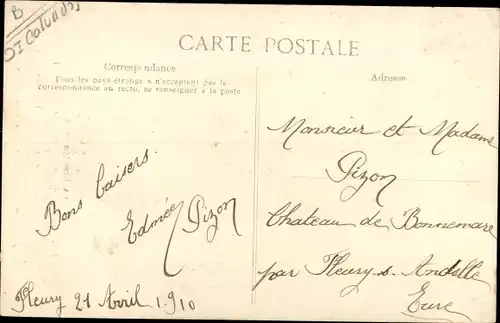 B
DZ Calvados
CARTE POSTALE
Correspondance
Tous les pays étrange s n'acceptent pas la
correspondance au recto, se renseigner à la poste
Bons baisers.
Edmée Pizon
Fleury 21 Avril 1910
Adresse
Monsieur et Madame
Pizon
Chateau de Bonnemare
par Fleury-s-Andelle
Eure